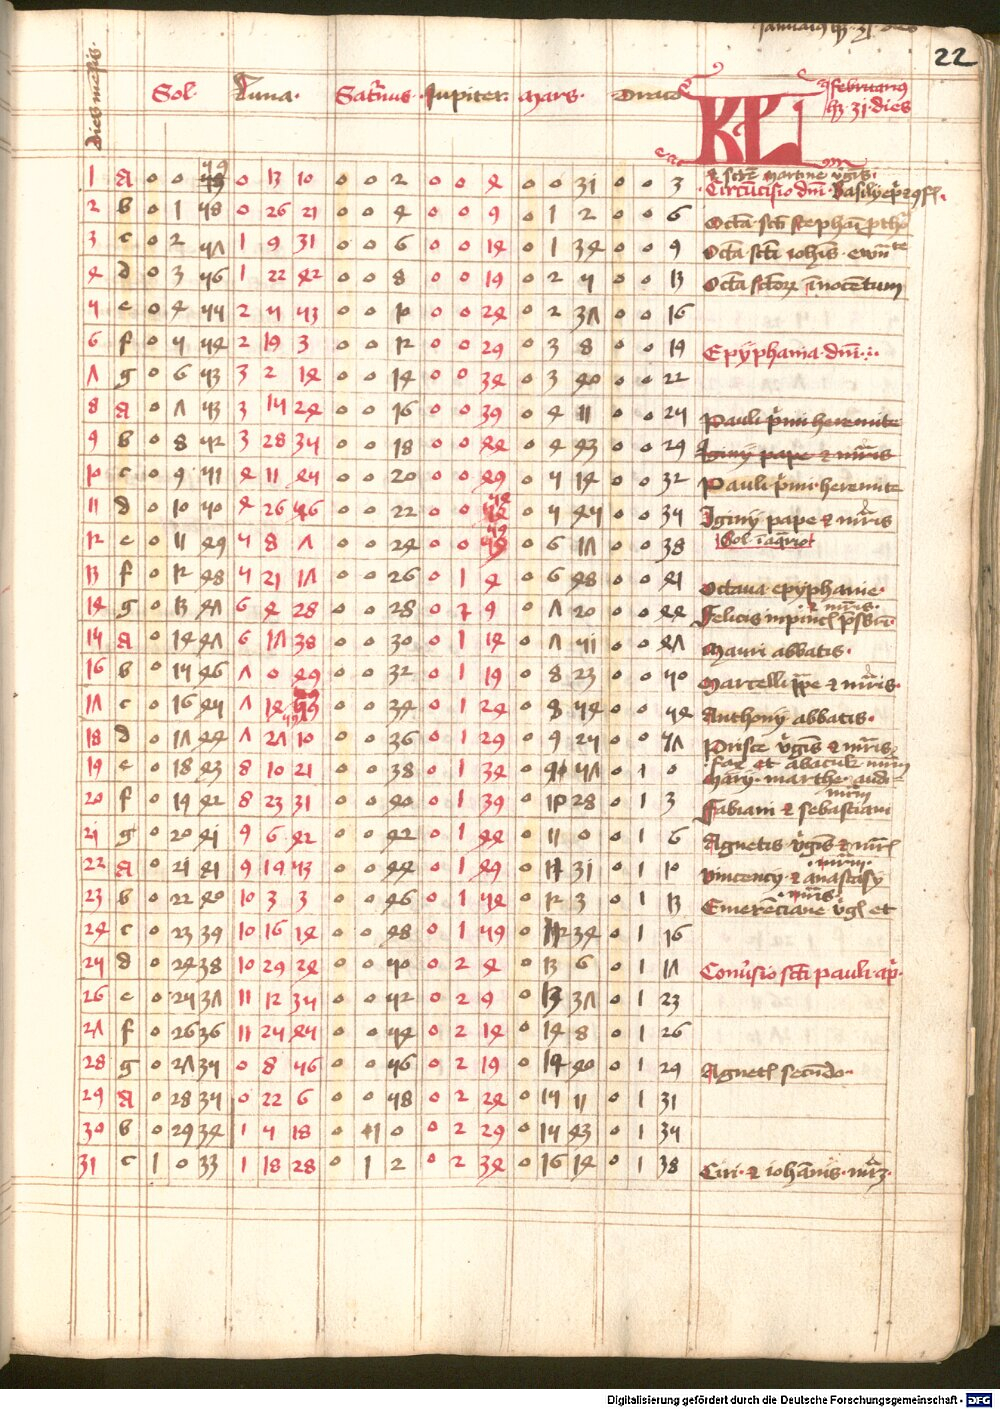 Januarius hz 31 dies
22
Dies mensis
Sol. Luna. Saturnus. Jupiter. Mars. Draco
KL
februarius
hz 31 dies
& scte martine vgis.
1 A 0 0 59 0 13 10 0 0 2 0 0 4 0 0 31 0 0 3 Circumcisio dni
2 b 0 1 58 0 26 21 0 0 4 0 0 9 0 1 2 0 0 6 Octa scti stephani
3 c 0 2 57 1 9 31 0 0 6 0 0 14 0 1 34 0 0 9 Octa scti iohis
4 d 0 3 56 1 22 42 0 0 8 0 0 19 0 2 5 0 0 13 Octa sctorz innocentum
5 e 0 4 55 2 5 53 0 0 10 0 0 24 0 2 37 0 0 16
6 f 0 5 54 2 19 3 0 0 12 0 0 29 0 3 8 0 0 19 Epyphania dni
7 g 0 6 53 3 2 14 0 0 14 0 0 34 0 3 40 0 0 22
8 A 0 7 53 3 15 24 0 0 16 0 0 39 0 4 11 0 0 25 Pauli pmi heremite
9 b 0 8 52 3 28 35 0 0 18 0 0 44 0 4 43 0 0 29 Iginij pape & mris
10 c 0 9 51 4 11 45 0 0 20 0 0 49 0 5 14 0 0 32 Pauli pmi heremite
11 d 0 10 50 4 26 46 0 0 22 0 0 54 0 5 45 0 0 35 Iginij pape & mris
12 e 0 11 49 5 8 7 0 0 24 0 0 59 0 6 17 0 0 38 Sol i aqrio
13 f 0 12 48 5 21 17 0 0 26 0 1 4 0 6 48 0 0 41 Octava epyphanie
14 g 0 13 47 6 4 28 0 0 28 0 1 9 0 7 20 0 0 44 Felicis inpincl & mris
15 A 0 14 47 6 17 38 0 0 30 0 1 14 0 7 51 0 0 47 Mauri abbatis.
16 b 0 15 46 7 0 49 0 0 32 0 1 19 0 8 23 0 0 50 Marcelli ppe & mris.
17 c 0 16 45 7 14 59 0 0 34 0 1 24 0 8 54 0 0 54 Anthonij abbatis.
18 d 0 17 44 7 27 10 0 0 36 0 1 29 0 9 25 0 0 57 Prisce vgis & mris
19 e 0 18 43 8 10 21 0 0 38 0 1 34 0 9 57 0 1 0 Marij. marthe. audifax et abacuk mrm
20 f 0 19 42 8 23 31 0 0 40 0 1 39 0 10 28 0 1 3 Fabiani & sebastiani mrm
21 g 0 20 41 9 6 42 0 0 42 0 1 44 0 11 0 0 1 6 Agnetis vgis & mris
22 A 0 21 41 9 19 53 0 0 44 0 1 49 0 11 31 0 1 10 Vincency & anastasy mrm.
23 b 0 22 40 10 3 3 0 0 46 0 1 54 0 12 3 0 1 13 Emerenciane vgl et mris
24 c 0 23 39 10 16 14 0 0 48 0 1 59 0 12 34 0 1 16
25 d 0 24 38 10 29 24 0 0 50 0 2 4 0 13 6 0 1 17 Conversio scti pauli ap.
26 e 0 25 37 11 12 35 0 0 52 0 2 9 0 13 37 0 1 23
27 f 0 26 36 11 25 45 0 0 54 0 2 14 0 14 8 0 1 26
28 g 0 27 35 0 8 56 0 0 56 0 2 19 0 14 40 0 1 29 Agnetl secundo.
29 A 0 28 35 0 22 6 0 0 58 0 2 24 0 15 11 0 1 31
30 b 0 29 34 1 5 18 0 1 0 0 2 29 0 15 43 0 1 35
31 c 1 0 33 1 18 28 0 1 2 0 2 34 0 16 14 0 1 38 Ciri & iohannis mrz.
Digitalisierung gefördert durch die Deutsche Forschungsgemeinschaft - DFG